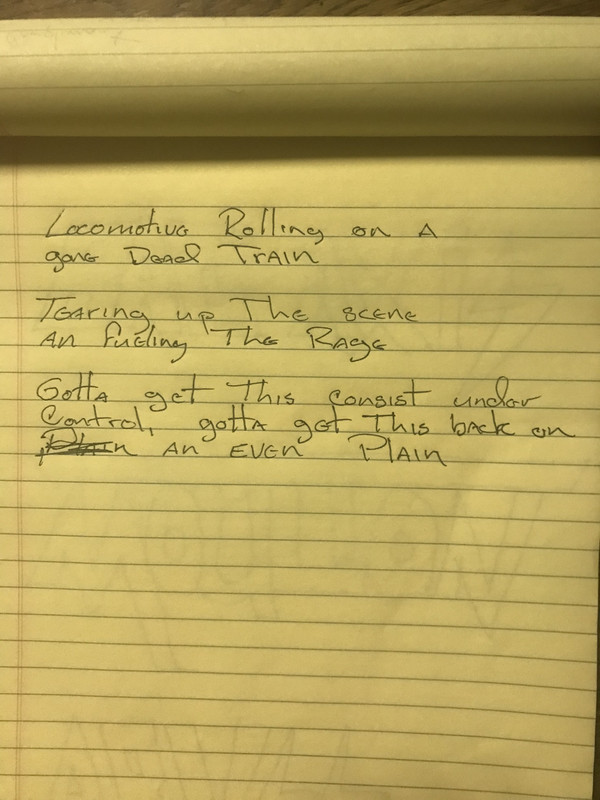 Locomotive Rolling on A
gone Dead Train
Tearing up The scene
An fueling The Rage
Gotta get This consist under
Control, gotta get This back on
An Even Plain